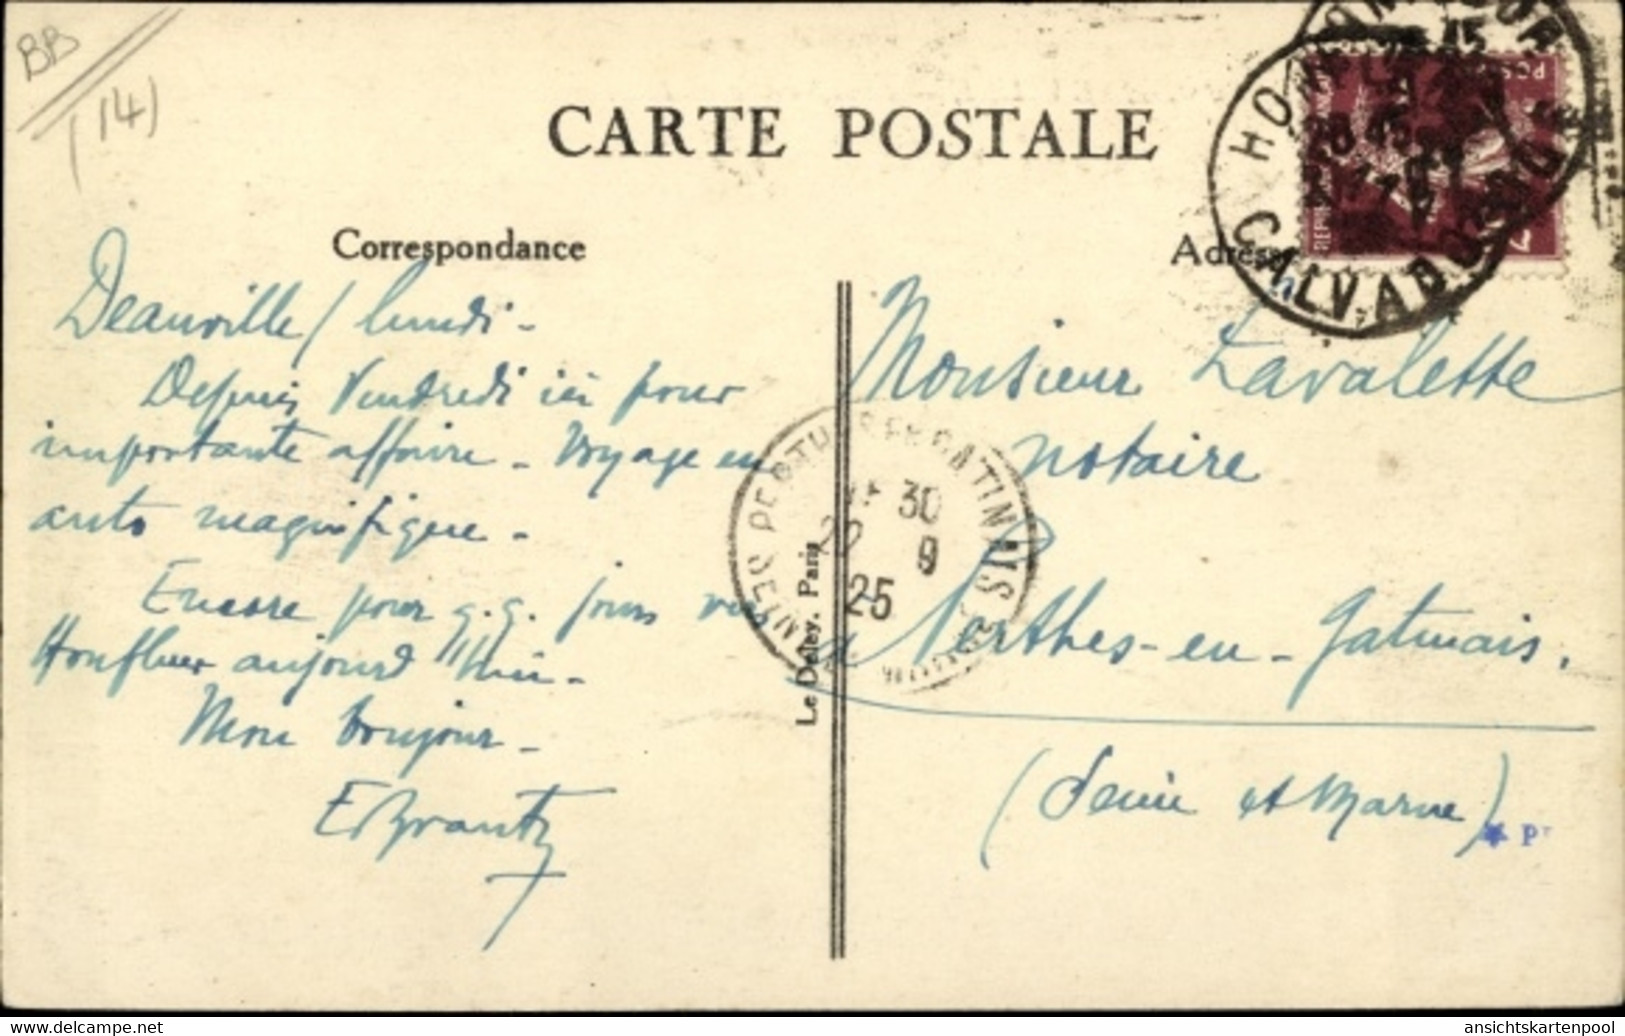 BB
(14)
CARTE POSTALE
Correspondance
Adresse
HONFLEUR
CALVADOS
Deauville / lundi -
Depuis Vendredi ici pour
importante affaire - Voyage en
auto magnifique -
Encore pour q.q. jours vers
Honfleur aujourd'hui -
Mon bonjour -
Monsieur Lavalette
notaire
à Perthes-en-Gatinais.
(Seine et Marne)
30
22 9
25
Le Deley, Paris
www.delcampe.net
ansichtskartenpool